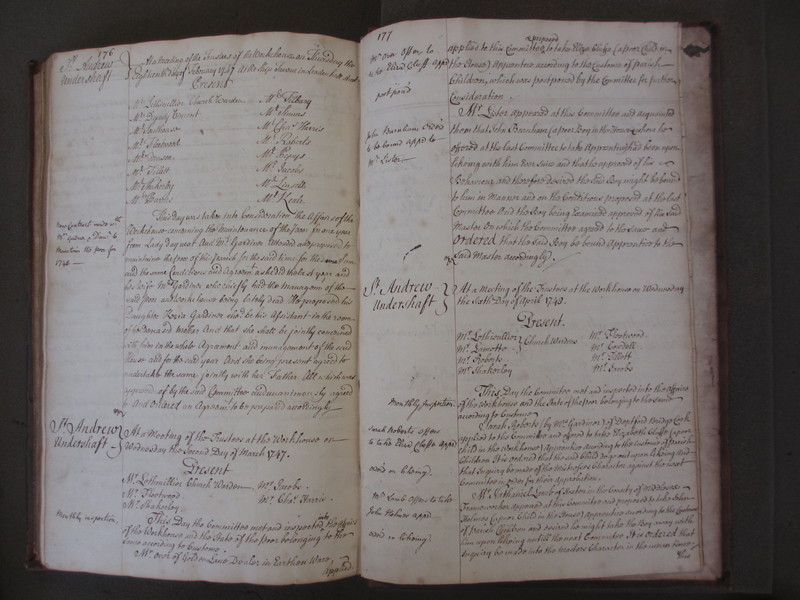 176
St. Andrew
Undershaft
At a Meeting of the Trustees of the Workhouse on Thursday the
Eighteenth day of February 1747 At the Ship Tavern in
Present
Mr. Lethieullier Church Warden Mr. Tilbury
Mr. Deputy Mr.
Mr. Mr. Chas. Harris
Mr. Fleetwood Mr. Roberts
Mr. Mr. Pepys
Mr. Tillott Mr. Jacobs
Mr. Shakerley Mr.
Mr. Mr. Keale
This day was taken into Consideration the Affairs of the
Workhouse concerning the maintenance of the poor for one year
from Lady day next And Mr. Gardiner attended and proposed to
maintain the poor of this parish for the said time for the same Sum
and the same Conditions and Agreemt. as he did the last year and
his Wife Mrs. Gardiner who chiefly had the management of the
said poor and workhouse being lately dead He proposed his
Daughter Gardiner should be his Assistant in the room
of his Deceased And that she shall be jointly concerned
with him in the whole Agreement and management of the said
House all for the said year And she being present agreed to
undertake the same jointly with her Father All which was
approved of by the said Committee and unanimously agreed
to And Ordered an Agreemt. to be prepared accordingly
New Contract made with
Mr. Gardiner
maintain the poor for
1748
St. Andrew
Undershaft
At a Meeting of the Trustees at the Workhouse on
Wednesday the Second Day of March 1747.
Present
Mr. Lethieullier Church Warden Mr. Jacobs
Mr. Fleetwood Mr. Chas. Harris
Mr. Shakerley
Monthly inspection
This Day the Committee met and inspected into the Affairs
of the Workhouse and the State of the Poor belonging to the
same according to Custome
Mr. Orer of Golden Lane Dealer in Earthen Ware,
applied
177
Mr. Orer Offers to
take Eliza Cluffe appr.
postpond
proposed
applied to this Committee to take Eliza Cluffe (a poor Child in
the House) apprentice according to the Custome of parish
Children, which was postponed by the Committee for further
Consideration
John Barnham Order'd
to be bound app. to
Mr. Lister
Mr. Lister appeared at this Committee and acquainted
them that John Barnham (a poor Boy in the House) whom he
offered at the last Committee to take Apprentice had been upon
likeing with him Ever since and that he approved of his
Behaviour and therefore desired the said Boy might be bound
to him in Manner and on the Conditions proposed at the last
Committee And the Boy being Examined approved of the said
Master On which the Committee agreed to the same and
Ordered that the said Boy be bound Apprentice to the
said Master accordingly.
St. Andrew
Undershaft
At a Meeting of the Trustees at the Workhouse on Wednesday
the Sixth Day of April 1748.
Present.
Mr. Lethieullier Church Wardens Mr. Fleetwood.
Mr. Lynette Mr. Cordell
Mr. Roberts Mr. Tillott
Mr. Shakerley Mr. Jacobs
Monthly inspection
This Day the Committee met and inspected into the Affairs
of the Workhouse and the State of the Poor belonging to the same
according to Custome
Sarah Roberts Offers
to take Eliza Cluffe appr.
order'd on likeing.
Sarah Roberts (by Mr. Gardiner) of Deptford Bridge Cook
applied to this Committee and offered to take Elizabeth Cluffe (a poor
child in the Workhouse) Apprentice according to the Custome of Parish
Children It is ordered that the said Child do go out upon likeing And
that Inquiry be made of the Mistress Character against the next
Committee in Order for their approbation.
Mr. Lamb Offers to take
John Holmes appr.
order'd on likeing
Mr. Nathaniel Lamb of Hoxton in the County of Middlesex
Frameworker appeared at this Committee and proposed to take John
Holmes (a poor Child in the House) Apprentice according to the Custome
of Parish Children and desired he might take the Boy away with
him upon likeing untill the next Committee It is Ordered that
Inquiry be made into the Masters Character in the mean time
This